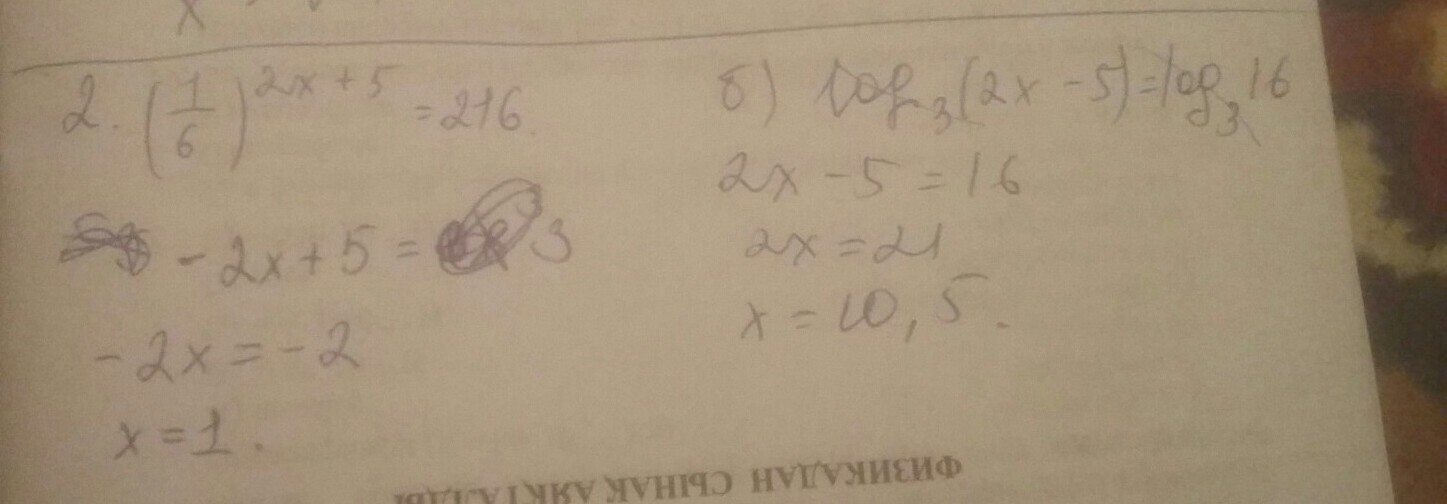 x
2. (1/6)^(2x+5) = 216.
-2x+5 = 3
-2x = -2
x = 1.
б) log₃(2x-5) = log₃16
2x-5 = 16
2x = 21
x = 10,5.
ФИЗИКАДАН СЫНАҚ АЯҚТАЛДЫ